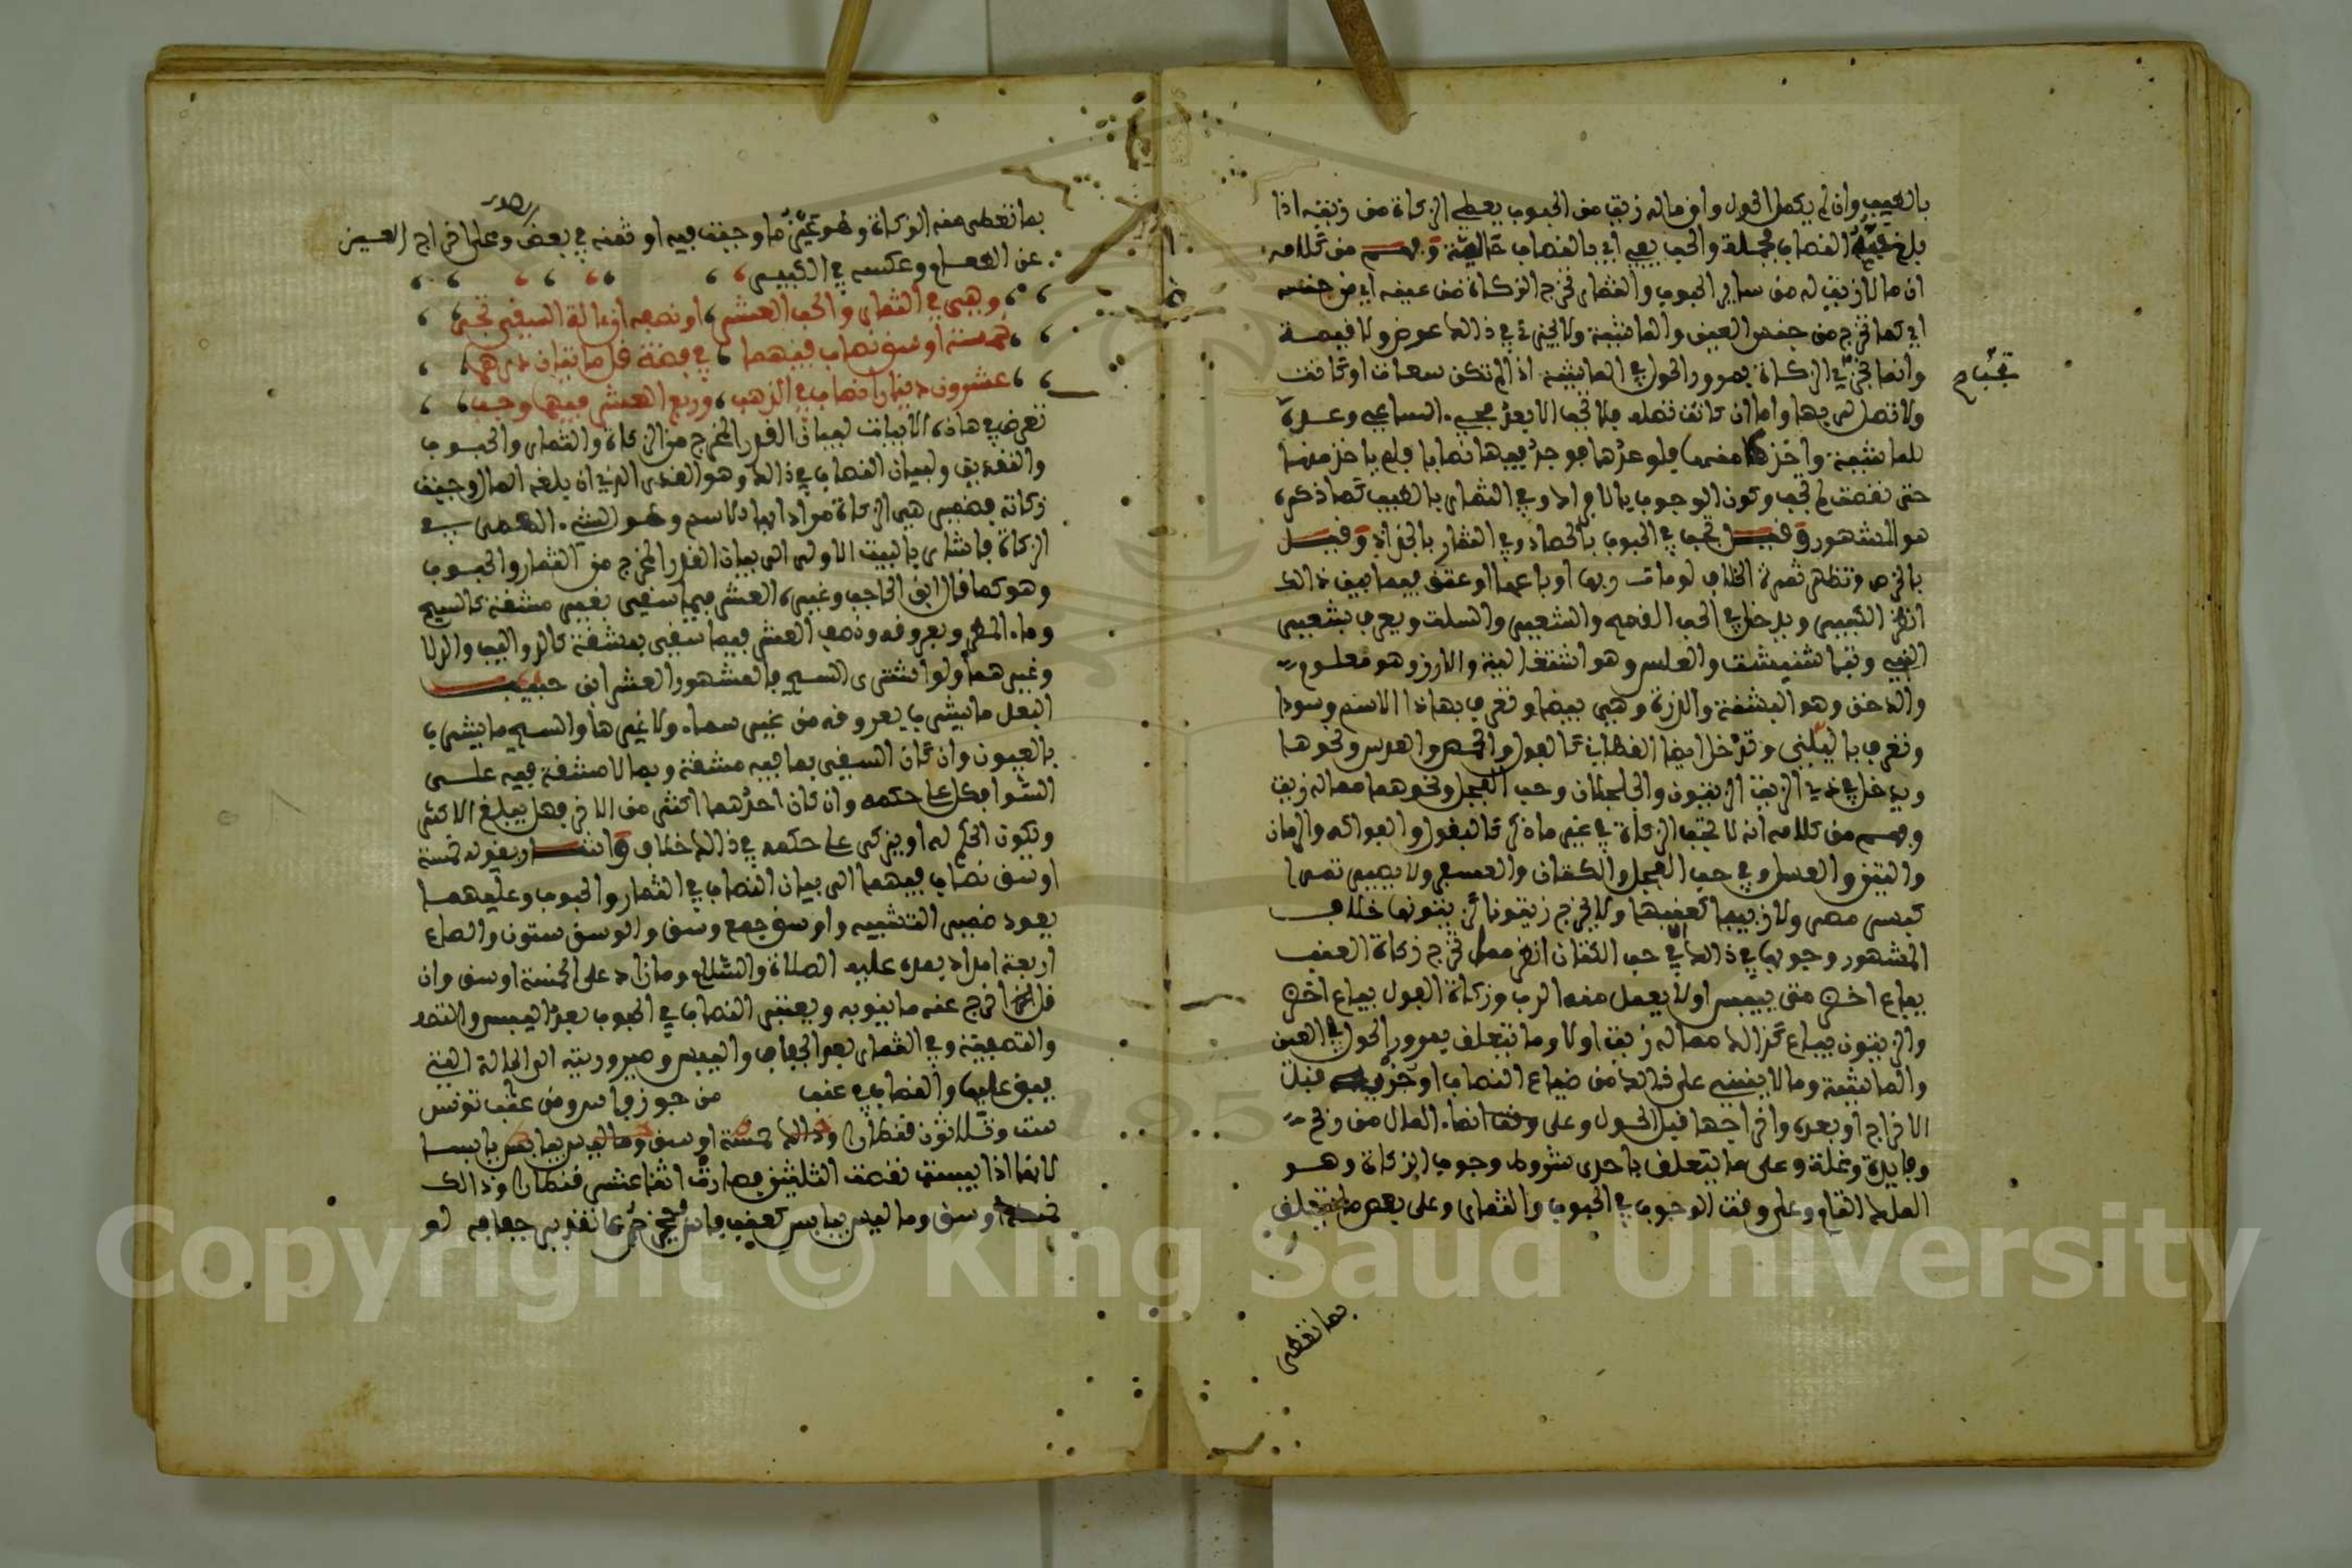 بالطيب وان لم يكمل الحول وان ما له زيت من الحبوب يعطي الزكاة من زيته اذا
بلغ حبه النصاب مجملة والحب يعي اي بالنصاب وبهم من كلامه
ان ما لا زيت له من ساير الحبوب والثمار تخرج الزكاة من عينه اي من جنسه
اي كما تخرج من جنس العين والماشية ولا يجزئ في ذالك عوض ولا قيمة
وانما تجزئ الزكاة بمرور الحول في الماشية اذا لم تكن سعاة او كانت
ولا تصل اليها واما ان كانت تصله فلا تجب الا بعد مجيء الساعي وعده
للماشية واخذها منها فلو عدها فوجد فيها نصابا فلم ياخذ منها
حتى نقصت لم تجب وكون الوجوب بالافراك وفي الثمار بالطيب كما ذكره
هو المشهور وقيل تجب في الحبوب بالحصاد وفي الثمار بالجذاذ وقيل
بالخرص وتظهر ثمرة الخلاف لو مات ربها او باعها او عتق فيما بين ذالك
انظر الكبير ويدخل في الحب القمح والشعير والسلت ويعرف بشعير
النبي والعلس وهو اشتغالية والارز وهو معلوم
والدخن وهو البشنة والذرة وهي بيضا وتعرف بهاذا الاسم وسودا
وتعرف وتدخل ايضا القطاني كالفول والحمص والعدس ونحوها
ويدخل في ذي الزيت الزيتون والجلجلان وحب الفجل ونحوهما مما له زيت
وبهم من كلامه انه لا تجب الزكاة في غير ما ذكر كالبقول والفواكه والرمان
والتين والعسل وفي حب الفجل والكتان والعصفر ولا يصير تمرا
كبسر مصر ولا زبيبا كعنبها ولا يخرج زيتونا كزيتونها خلاف
المشهور وجوبها في ذالك الا في حب الكتان انظر هل تخرج زكاة العنب
يباع اخضر متى يبس اولا يعمل منه الرب وزكاة الفول يباع اخضر
والزيتون يباع كذالك مما له زيت اولا وما يتعلق بمرور الحول في العين
والماشية وما لا ينبني على ذالك من ضياع النصاب او جزء قبل
الاخراج او بعده واخراجها قبل الحول وعلى وقت انماء المال من ربح
وفايدة وغلة وعلى ما يتعلق باحدى شروط وجوب الزكاة وهو
الملك التام وعلى وقت الوجوب في الحبوب والثمار وعلى بعض ما يتعلق
بما تعطى
بما تعطى منه الزكاة وهو عين ما وجبت فيه او ثمنه في بعض وعلى اخراج العين
عن الطعام وعكسه في الكبير
وهي في الثمار والحب العشر او نصفه ان الة السقي تجر
خمسة اوسق نصاب فيهما في فضة قل مايتان درهما
عشرون دينارا نصاب في الذهب وربع العشر فيهما وجب
تعرض في هاذه الابيات لبيان القدر المخرج من الزكاة والثمار والحبوب
والنقدين ولبيان النصاب في ذالك وهو القدر الذي ان بلغه المال وجبت
زكاته فضمير هي الزكاة مرادا بها الاسم وهو الشيء المعطى في
الزكاة فاشار بالبيت الاولى الى بيان القدر المخرج من الثمار والحبوب
وهو كما قال ابن الحاجب وغيره العشر فيما سقي بغير مشقة كالسيح
وماء المطر وبعروقه ونصف العشر فيما سقي بمشقة كالدواليب والدلا
وغيرهما ولو اشترى السيح فالمشهور العشر ابن حبيب
البعل ما يشرب بعروقه من غير سماء ولا غيرها والسيح ما يشرب
بالعيون وان كان السقي بما فيه مشقة وبما لا مشقة فيه على
السواء فكل على حكمه وان كان احدهما اكثر من الاخر فهل يبلغ الاكثر
ويكون الحكم له او يزكى على حكمه في ذالك خلاف واشار بقوله خمسة
اوسق نصاب فيهما الى بيان النصاب في الثمار والحبوب وعليهما
يعود ضمير التثنية واوسق جمع وسق والوسق ستون والصاع
اربعة امداد بمده عليه الصلاة والسلام وما زاد على الخمسة اوسق وان
قل اخرج عنه ما ينوبه ويعتبر النصاب في الحبوب بعد اليبس والنقد
والتصفية وفي الثمار بعد الجفاف واليبس وصيرورته الى الحالة التي
يبقى عليها والنصاب في عنب من جوز فاس ومن عنب تونس
ست وثلاثون قنطارا وذالك خمسة اوسق وما ليس بيابس يابسا
لانها اذا يبست نقصت الثلثين فصارت اثنا عشر قنطارا وذالك
خمسة اوسق وما ليس بيابس كعنب جفافه لو